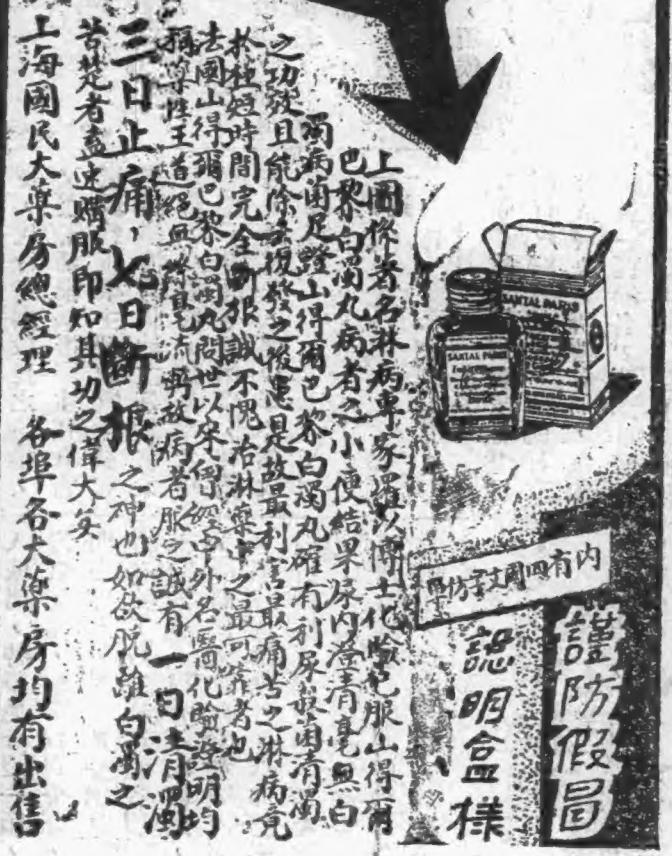 謹防假冒
認明盒樣
內有四國文字仿單
SANTAL PARIS
SANTAL PARIS
上圖係著名淋病專家羅以博士化驗已服山得爾
巴黎白濁丸病者之小便結果尿內瑩清毫無白
濁病菌足證山得爾巴黎白濁丸確有利尿殺菌清濁
之功效且能除去復發之後患是故最利害最痛苦之淋病竟
於極短時間完全斷根誠不愧治淋藥中之最可靠者也
法國山得爾巴黎白濁丸問世以來曾經中外名醫化驗證明均
稱藥性王道絕無絲毫流弊故病者服之誠有一日清濁
三日止痛，七日斷根之神也如欲脫離白濁之
苦楚者盍速購服即知其功之偉大矣
上海國民大藥房總經理 各埠各大藥房均有出售